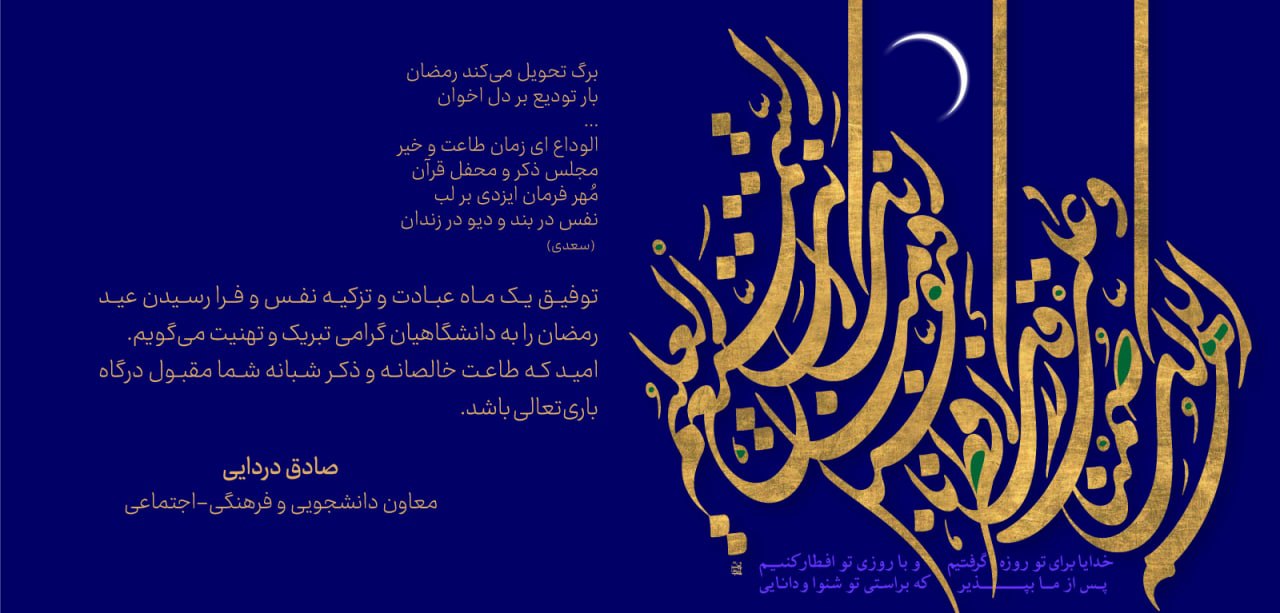 برگ تحویل می‌کند رمضان
بار تودیع بر دل اخوان
...
الوداع ای زمان طاعت و خیر
مجلس ذکر و محفل قرآن
مُهر فرمان ایزدی بر لب
نفس در بند و دیو در زندان
(سعدی)
توفیق یک ماه عبادت و تزکیه نفس و فرا رسیدن عید
رمضان را به دانشگاهیان گرامی تبریک و تهنیت می‌گویم.
امید که طاعت خالصانه و ذکر شبانه شما مقبول درگاه
باری‌تعالی باشد.
صادق دردایی
معاون دانشجویی و فرهنگی-اجتماعی
خدایا برای تو روزه گرفتیم و با روزی تو افطار کنیم
پس از ما بپذیر که براستی تو شنوا و دانایی